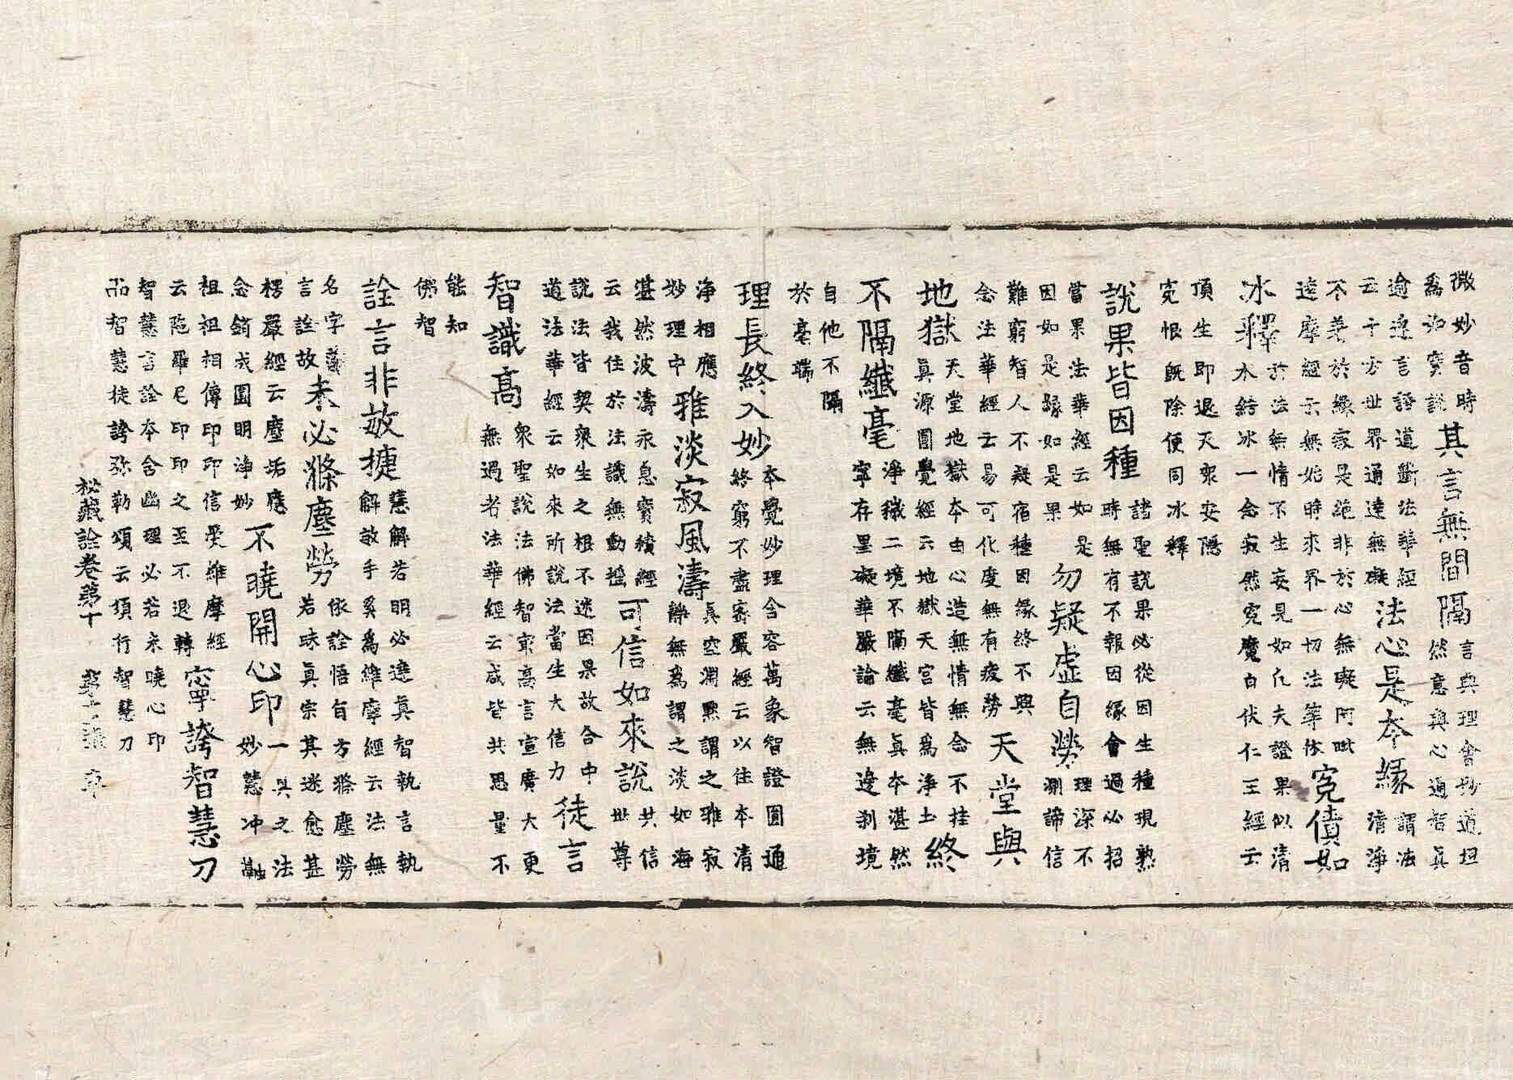 微妙音時
為說實諦
其言無間隔
言與理會妙道坦
然意與心通智真
逾遼言語道斷法華經
云十方世界通達無礙
法心是本緣
謂法
清淨
不著於緣寂是絶非於心無礙阿毗
達摩經云無始時來界一切法等依
冤債如
冰釋
於法無情不生妄見如凡夫證果似清
水結冰一念寂然冤魔自伏仁王經云
頂生即退天眾安隱
冤恨既除便同冰釋
說果皆因種
諸聖說果必從因生種現熟
時無有不報因緣會遇必招
當果法華經云如是
因如是緣如是果
勿疑虛自勞
理深不
測諦信
難窮智人不疑宿種因緣終不與
念法華經云易可化度無有疲勞
天堂與
地獄
天堂地獄本由心造無情無念不挂
真源圓覺經云地獄天宮皆為淨土
終
不隔纖毫
淨穢二境不隔纖毫真本湛然
寧存罣礙華嚴論云無邊刹境
自他不隔
於毫端
理長終入妙
本覺妙理含容萬象智證圓通
終窮不盡密嚴經云以住本清
淨相應
妙理中
雅淡寂風濤
真空淵默謂之雅寂
靜無為謂之淡如海
湛然波濤永息寶積經
云我住於法識無動搖
可信如來說
共信
世尊
說法皆契眾生之根不迷因果故合中
道法華經云如來所說法當生大信力
徒言
智識高
眾聖說法佛智寂高言宣廣大更
無過者法華經云咸皆共思量不
能知
佛智
詮言非敏捷
慧解若明必達真智執言執
解敏手奚為維摩經云法無
名字離
言詮故
未必滌塵勞
依詮悟旨方滌塵勞
若昧真宗其迷愈甚
楞嚴經云塵垢應
念銷成圓明淨妙
不曉開心印
一具之法
妙慧冲融
祖祖相傳印印信受維摩經
云陁羅尼印印之至不退轉
寧誇智慧刀
智慧言詮本含幽理必若未曉心印
智慧徒誇弥勒頌云頂行智慧刀
秘藏詮卷第十